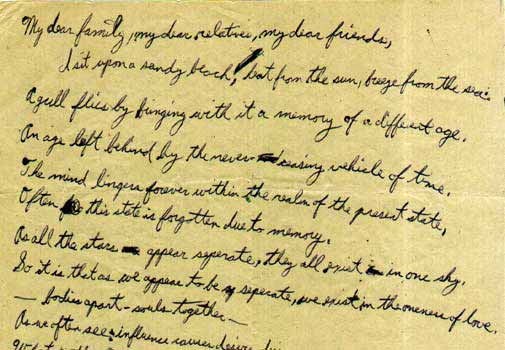 My dear family, my dear relative, my dear friends,
I sit upon a sandy beach, heat from the sun, breeze from the sea.
A gull flies by bringing with it a memory of a different age.
An age left behind by the never ceasing vehicle of time.
The mind lingers forever within the realm of the present state,
Often this state is forgotten due to memory.
As all the stars appear seperate, they all exist in one sky.
So it is that as we appear to be seperate, we exist in the oneness of love.
— bodies apart - souls together —
As we often see influence causes desire